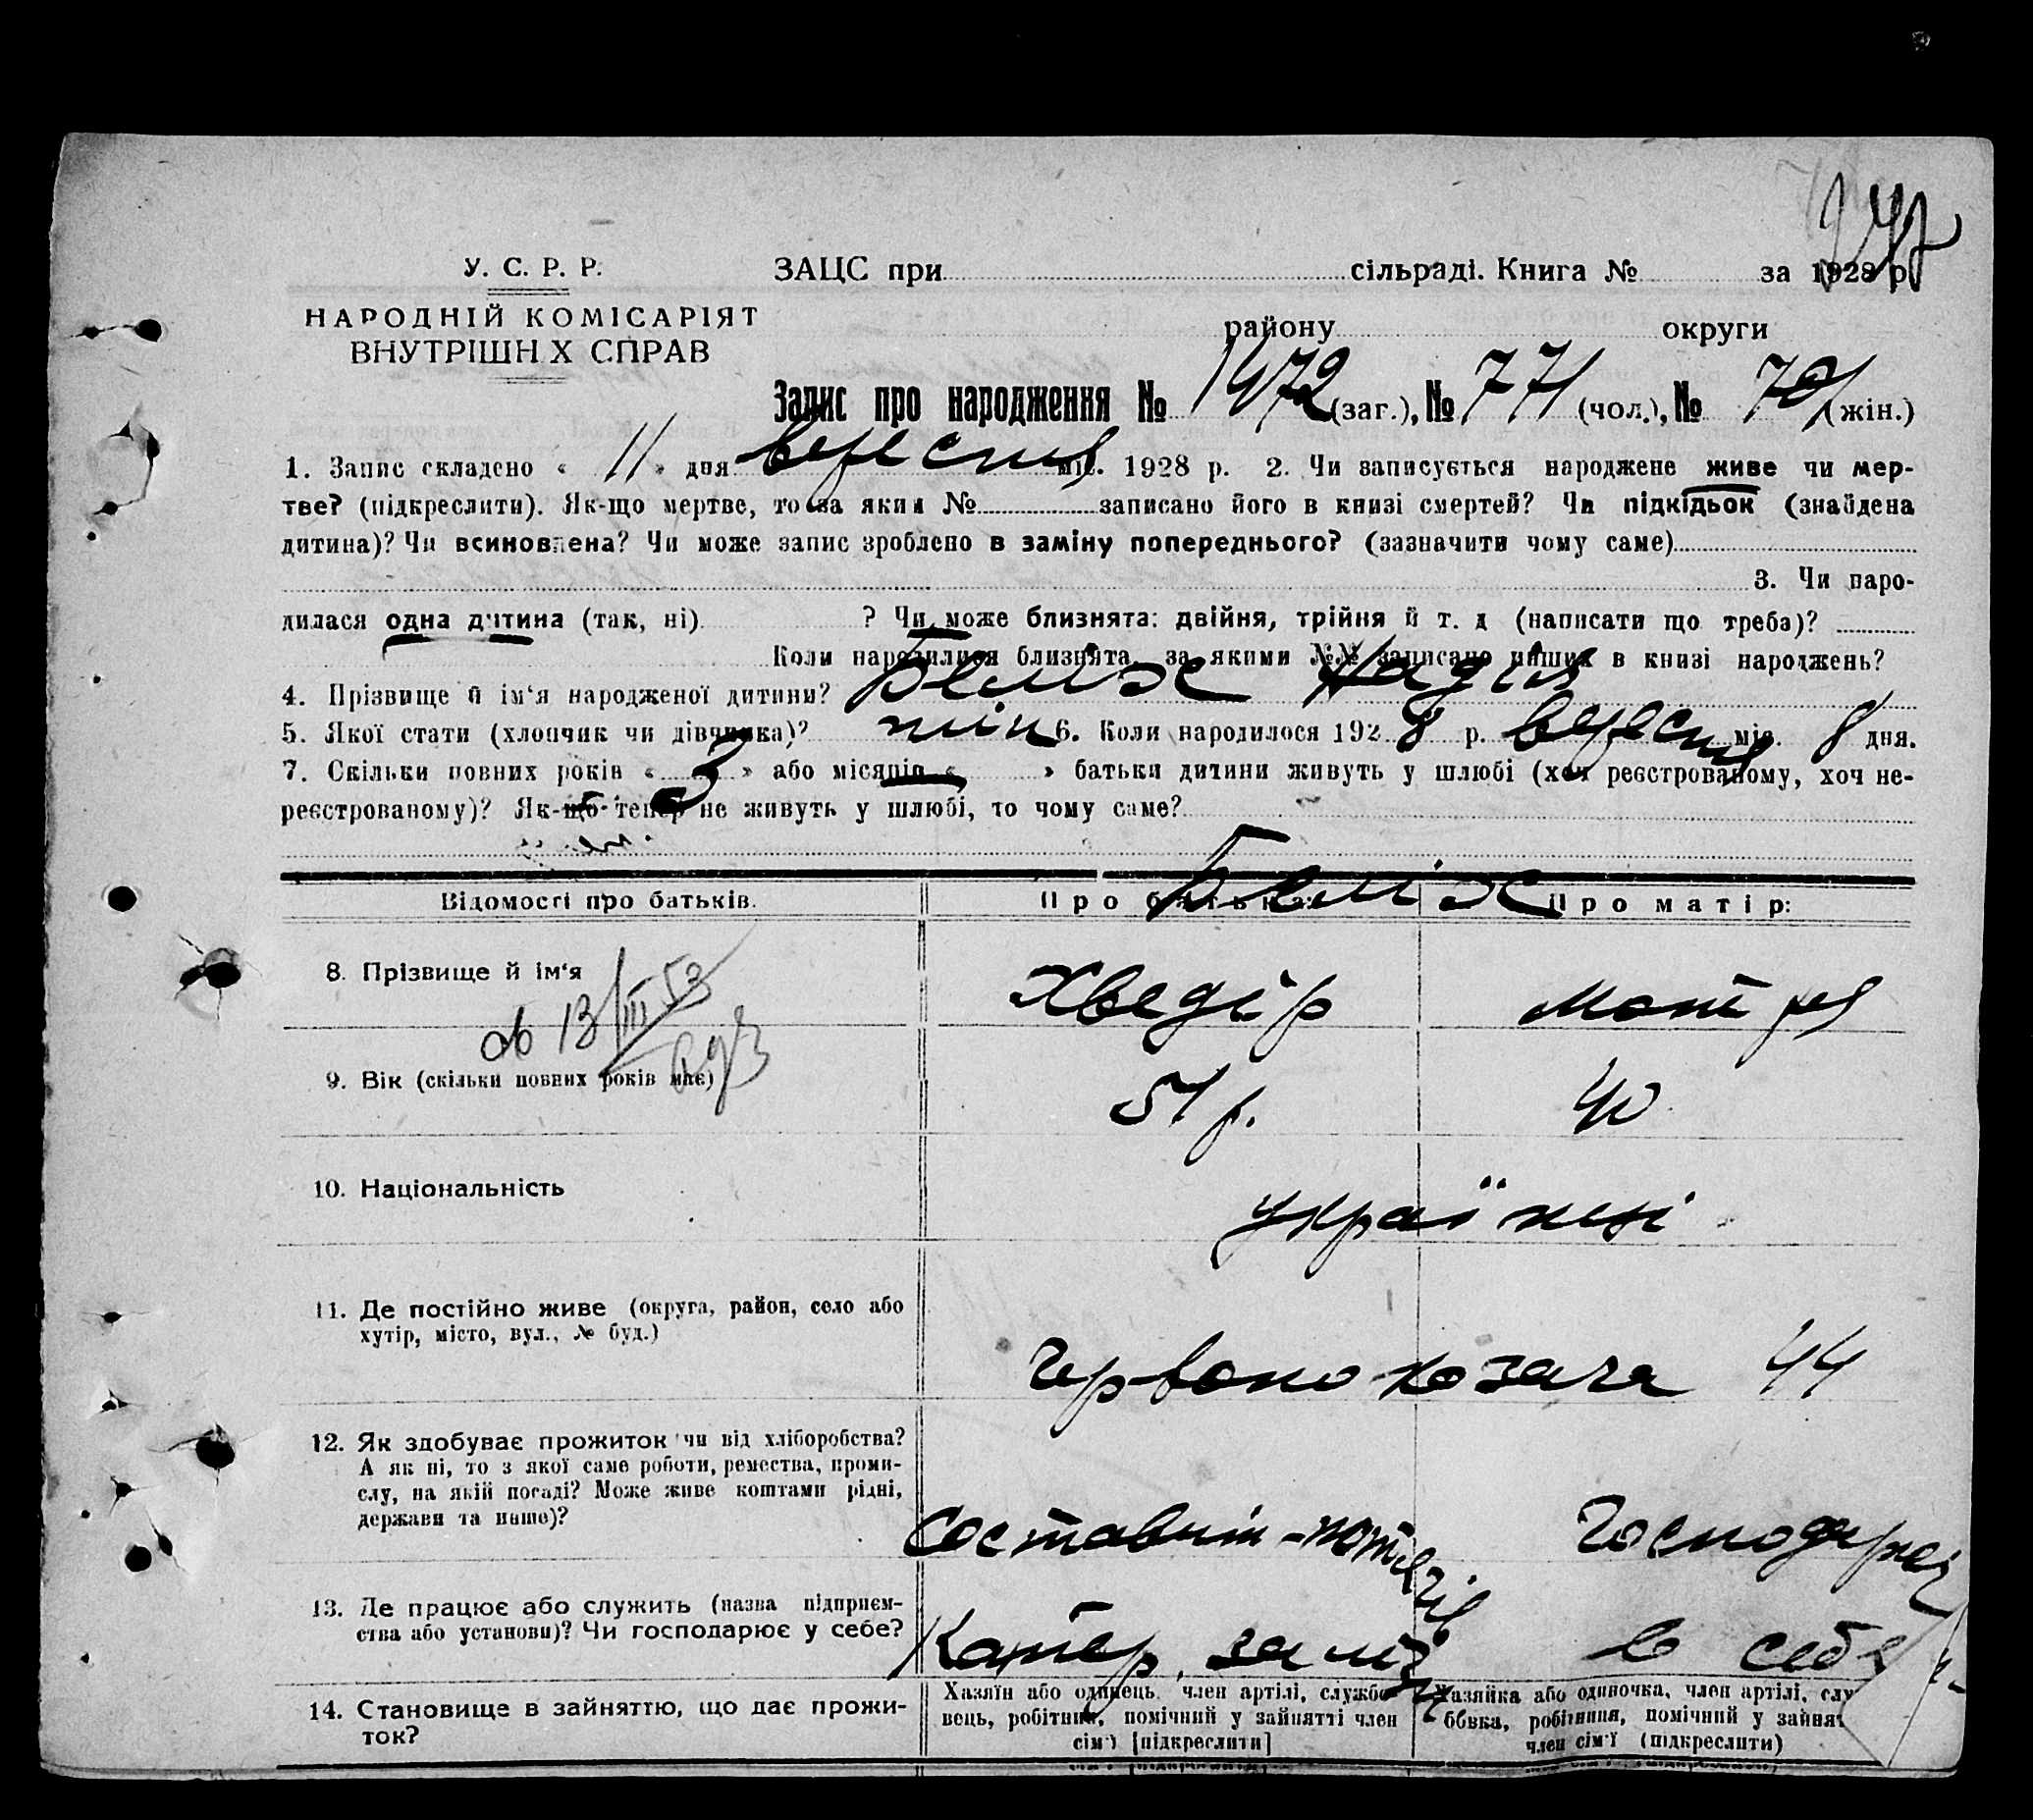 У. С. Р. Р.
НАРОДНІЙ КОМІСАРІЯТ
ВНУТРІШН Х СПРАВ
ЗАЦС при сільраді. Книга № за 1928 р.
району округи
Запис про народження № 1472 (заг.), № 771 (чол.), № 701 (жін.)
1. Запис складено « 11 » дня вересня міс. 1928 р. 2. Чи записується народжене живе чи мер-
тве? (підкреслити). Як-що мертве, то за яким № записано його в книзі смертей? Чи підкідьок (знайдена
дитина)? Чи всиновлена? Чи може запис зроблено в заміну попереднього? (зазначити чому саме)
3. Чи наро-
дилася одна дитина (так, ні) ? Чи може близнята: двійня, трійня й т. д (написати що треба)?
Коли народилися близнята, за якими №№ записано инших в книзі народжень?
4. Прізвище й ім‘я народженої дитини? Надія
5. Якої стати (хлопчик чи дівчинка)? 6. Коли народилося 1928 р. вересня міс. 8 дня.
7. Скільки повних років « 3 » або місяців « » батьки дитини живуть у шлюбі (хоч реєстрованому, хоч не-
реєстрованому)? Як-що тепер не живуть у шлюбі, то чому саме?
Відомості про батьків. Про батька: Про матір:
8. Прізвище й ім‘я Хведір Мотря
9. Вік (скільки повних років має) 51 р. 40
10. Національність українці
11. Де постійно живе (округа, район, село або
хутір, місто, вул., № буд.)
Червоно козача 44
12. Як здобуває прожиток чи від хліборобства?
А як ні, то з якої саме роботи, ремества, проми-
слу, на якій посаді? Може живе коштами рідні,
держави та инше)?
Составит-потягів Господарка
13. Де працює або служить (назва підприєм-
ства або установи)? Чи господарює у себе?
Катер. залізн в себе
14. Становище в зайняттю, що дає прожи-
ток?
Хазяїн або одинець, член артілі, службо-
вець, робітник, помічний у зайнятті член
сім‘ї [підкреслити]
Хазяйка або одиночка, член артілі, слу
бовка, робітниця, помічний у зайня
член сім‘ї (підкреслити)